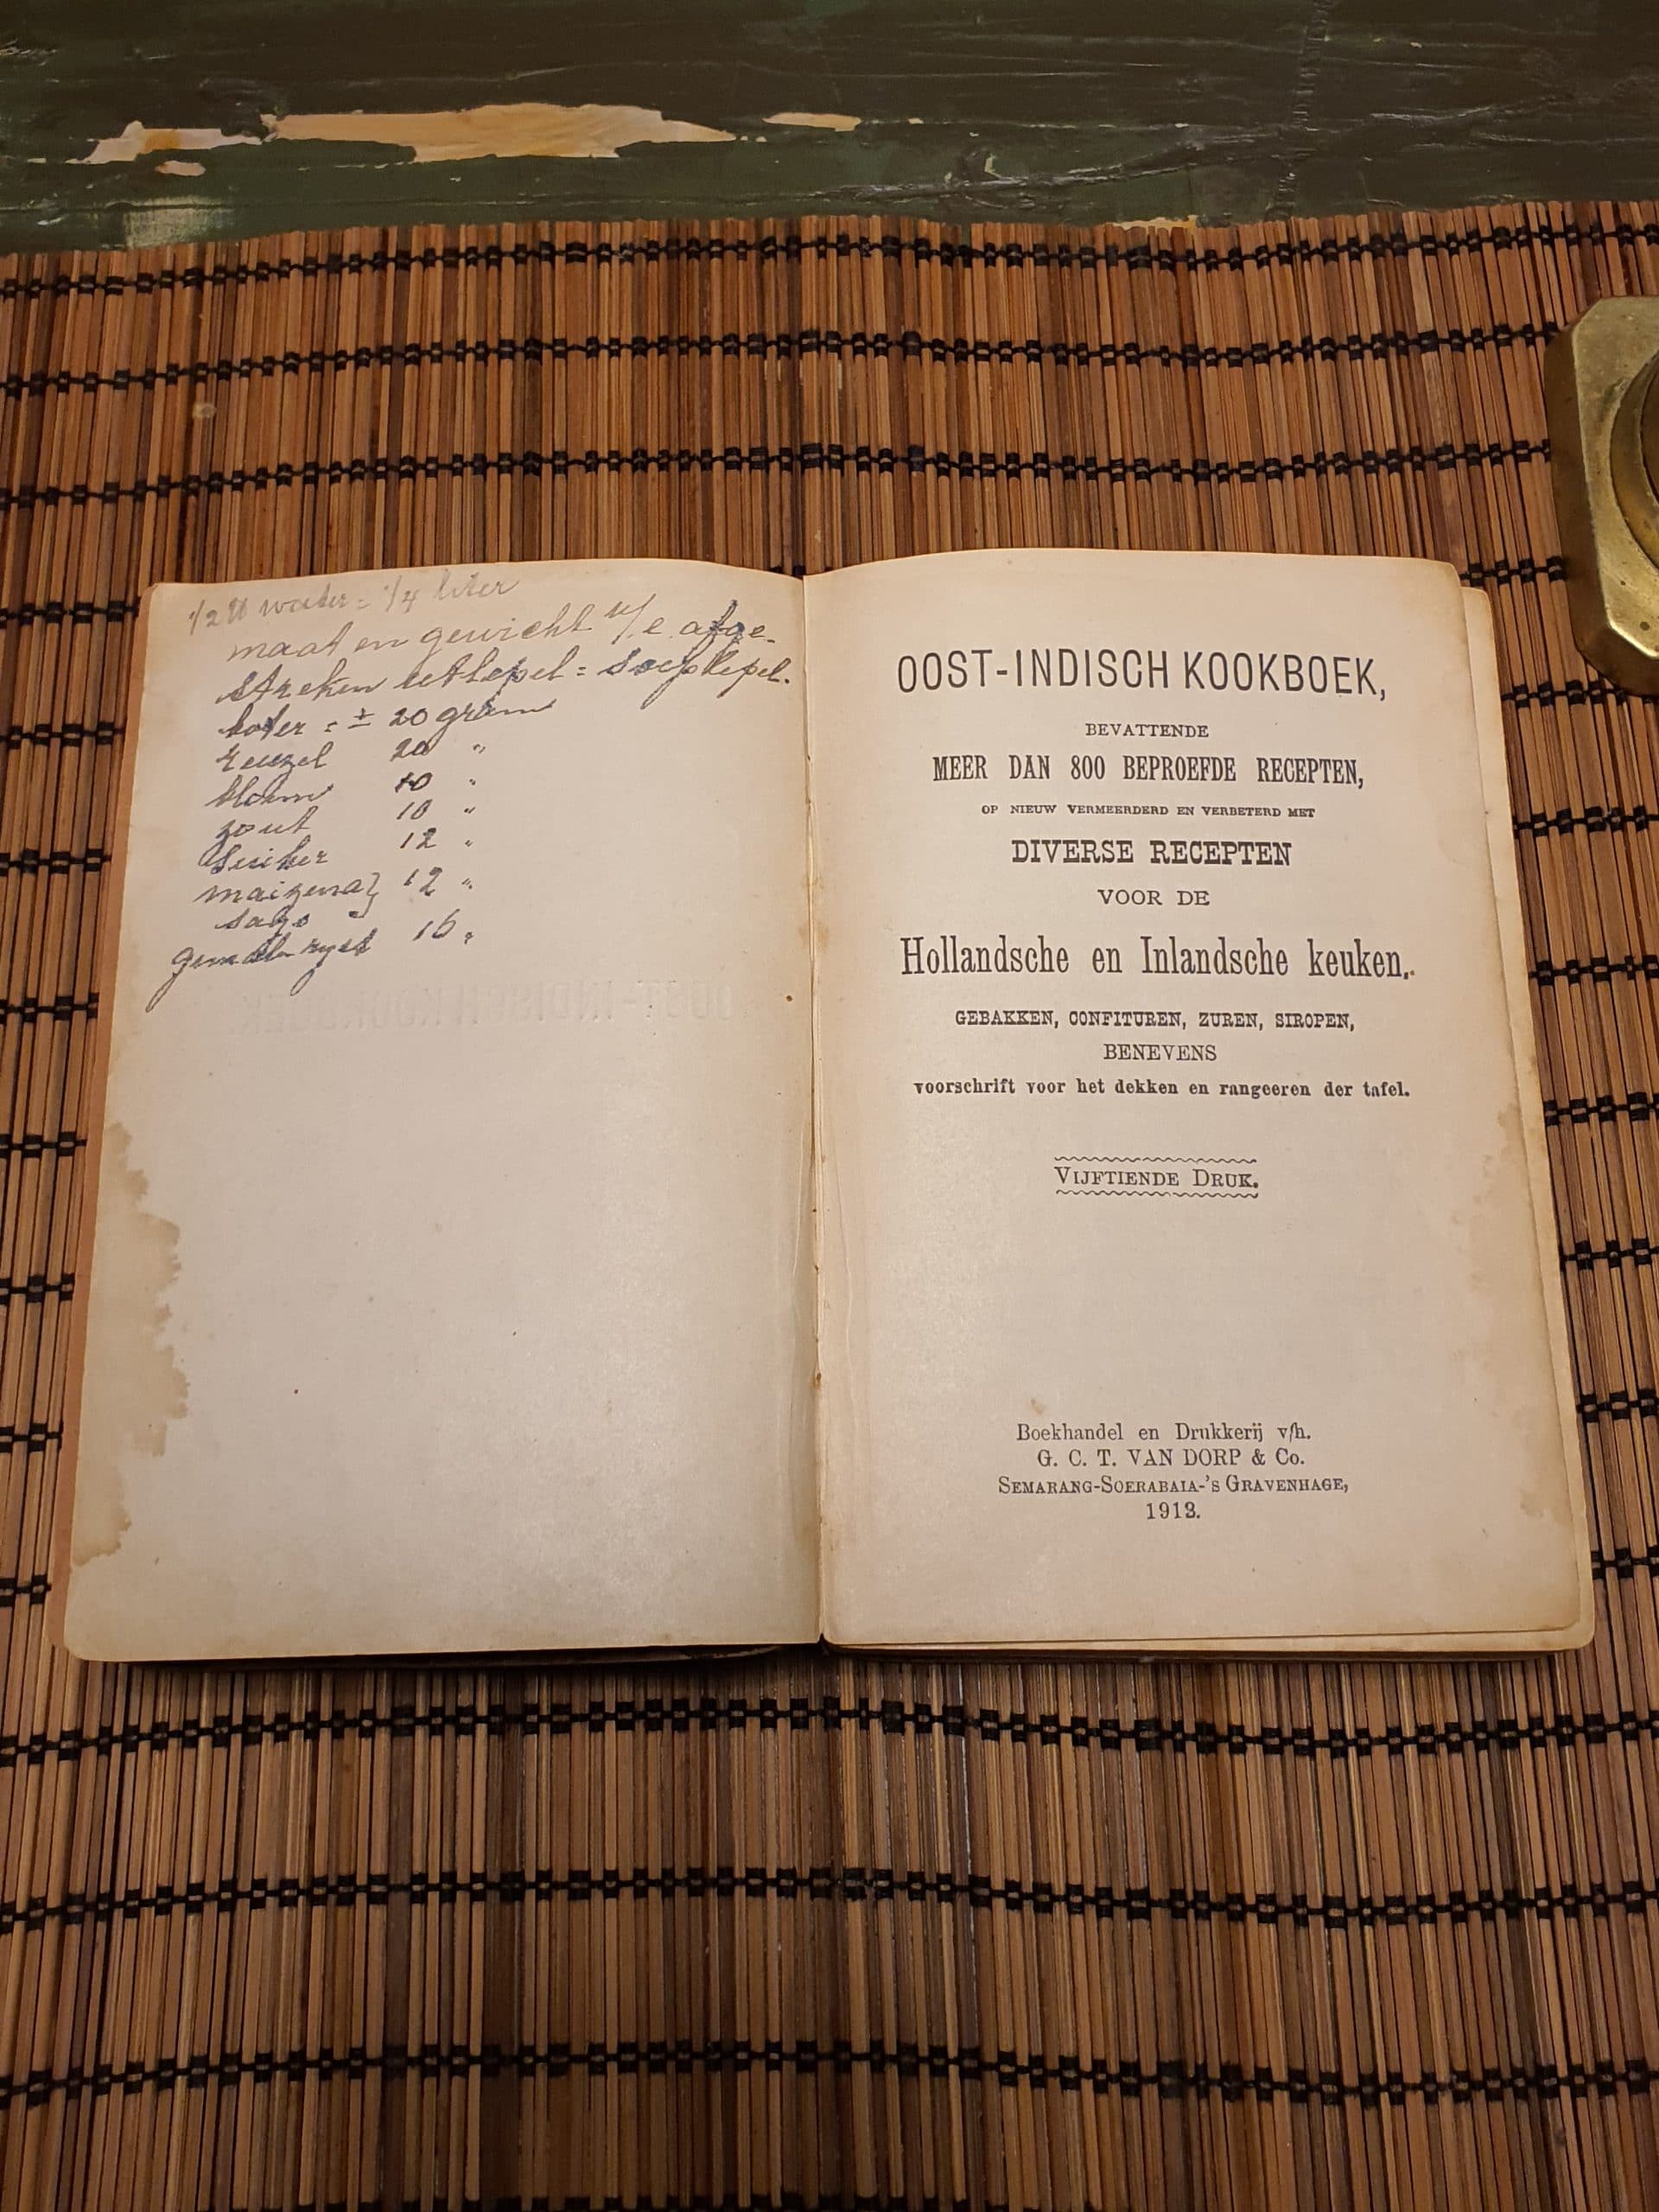 1/2 ℔ water = 1/4 liter
maat en gewicht v/e afge-
streken eetlepel = soeplepel.
boter = ± 20 gram
reuzel 20 "
bloem 10 "
zout 10 "
Suiker 12 "
maizena} 12 "
sago
gemalen ryst 15 "
OOST-INDISCH KOOKBOEK,
BEVATTENDE
MEER DAN 800 BEPROEFDE RECEPTEN,
OP NIEUW VERMEERDERD EN VERBETERD MET
DIVERSE RECEPTEN
VOOR DE
Hollandsche en Inlandsche keuken,
GEBAKKEN, CONFITUREN, ZUREN, SIROPEN,
BENEVENS
voorschrift voor het dekken en rangeeren der tafel.
VIJFTIENDE DRUK.
Boekhandel en Drukkerij v/h.
G. C. T. VAN DORP & Co.
SEMARANG-SOERABAIA-'S GRAVENHAGE,
1913.